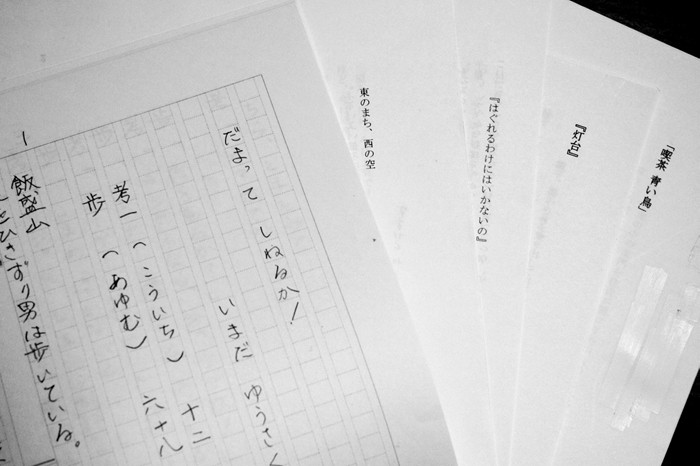 「喫茶 青い鳥」
『灯台』
『はぐれるわけにはいかないの』
東のまち、西の空
だまって しねるか!
いまだ ゆうさく
考一（こういち） 十二
歩 （あゆむ） 六十八
1
飯盛山
をひきずり男は歩いている。